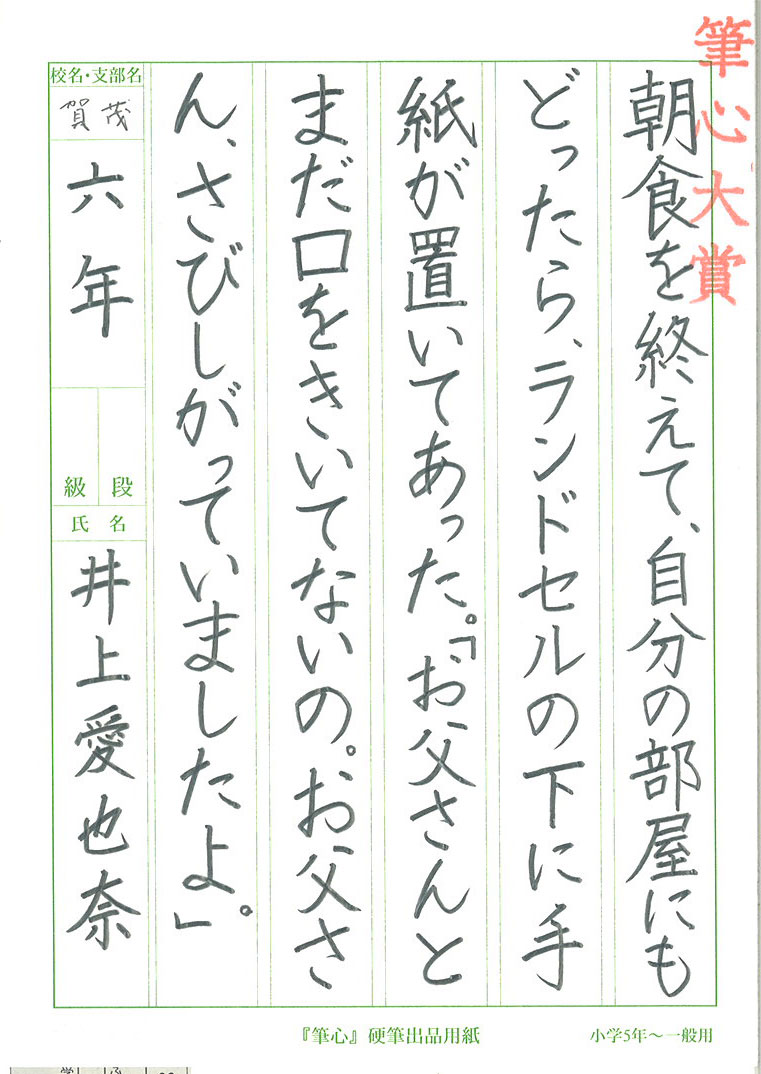 筆心大賞
朝食を終えて、自分の部屋にも
どったら、ランドセルの下に手
紙が置いてあった。「お父さんと
まだ口をきいてないの。お父さ
ん、さびしがっていましたよ。」
校名・支部名
賀茂
六年
段
級
氏名
井上愛也奈
『筆心』硬筆出品用紙
小学5年〜一般用